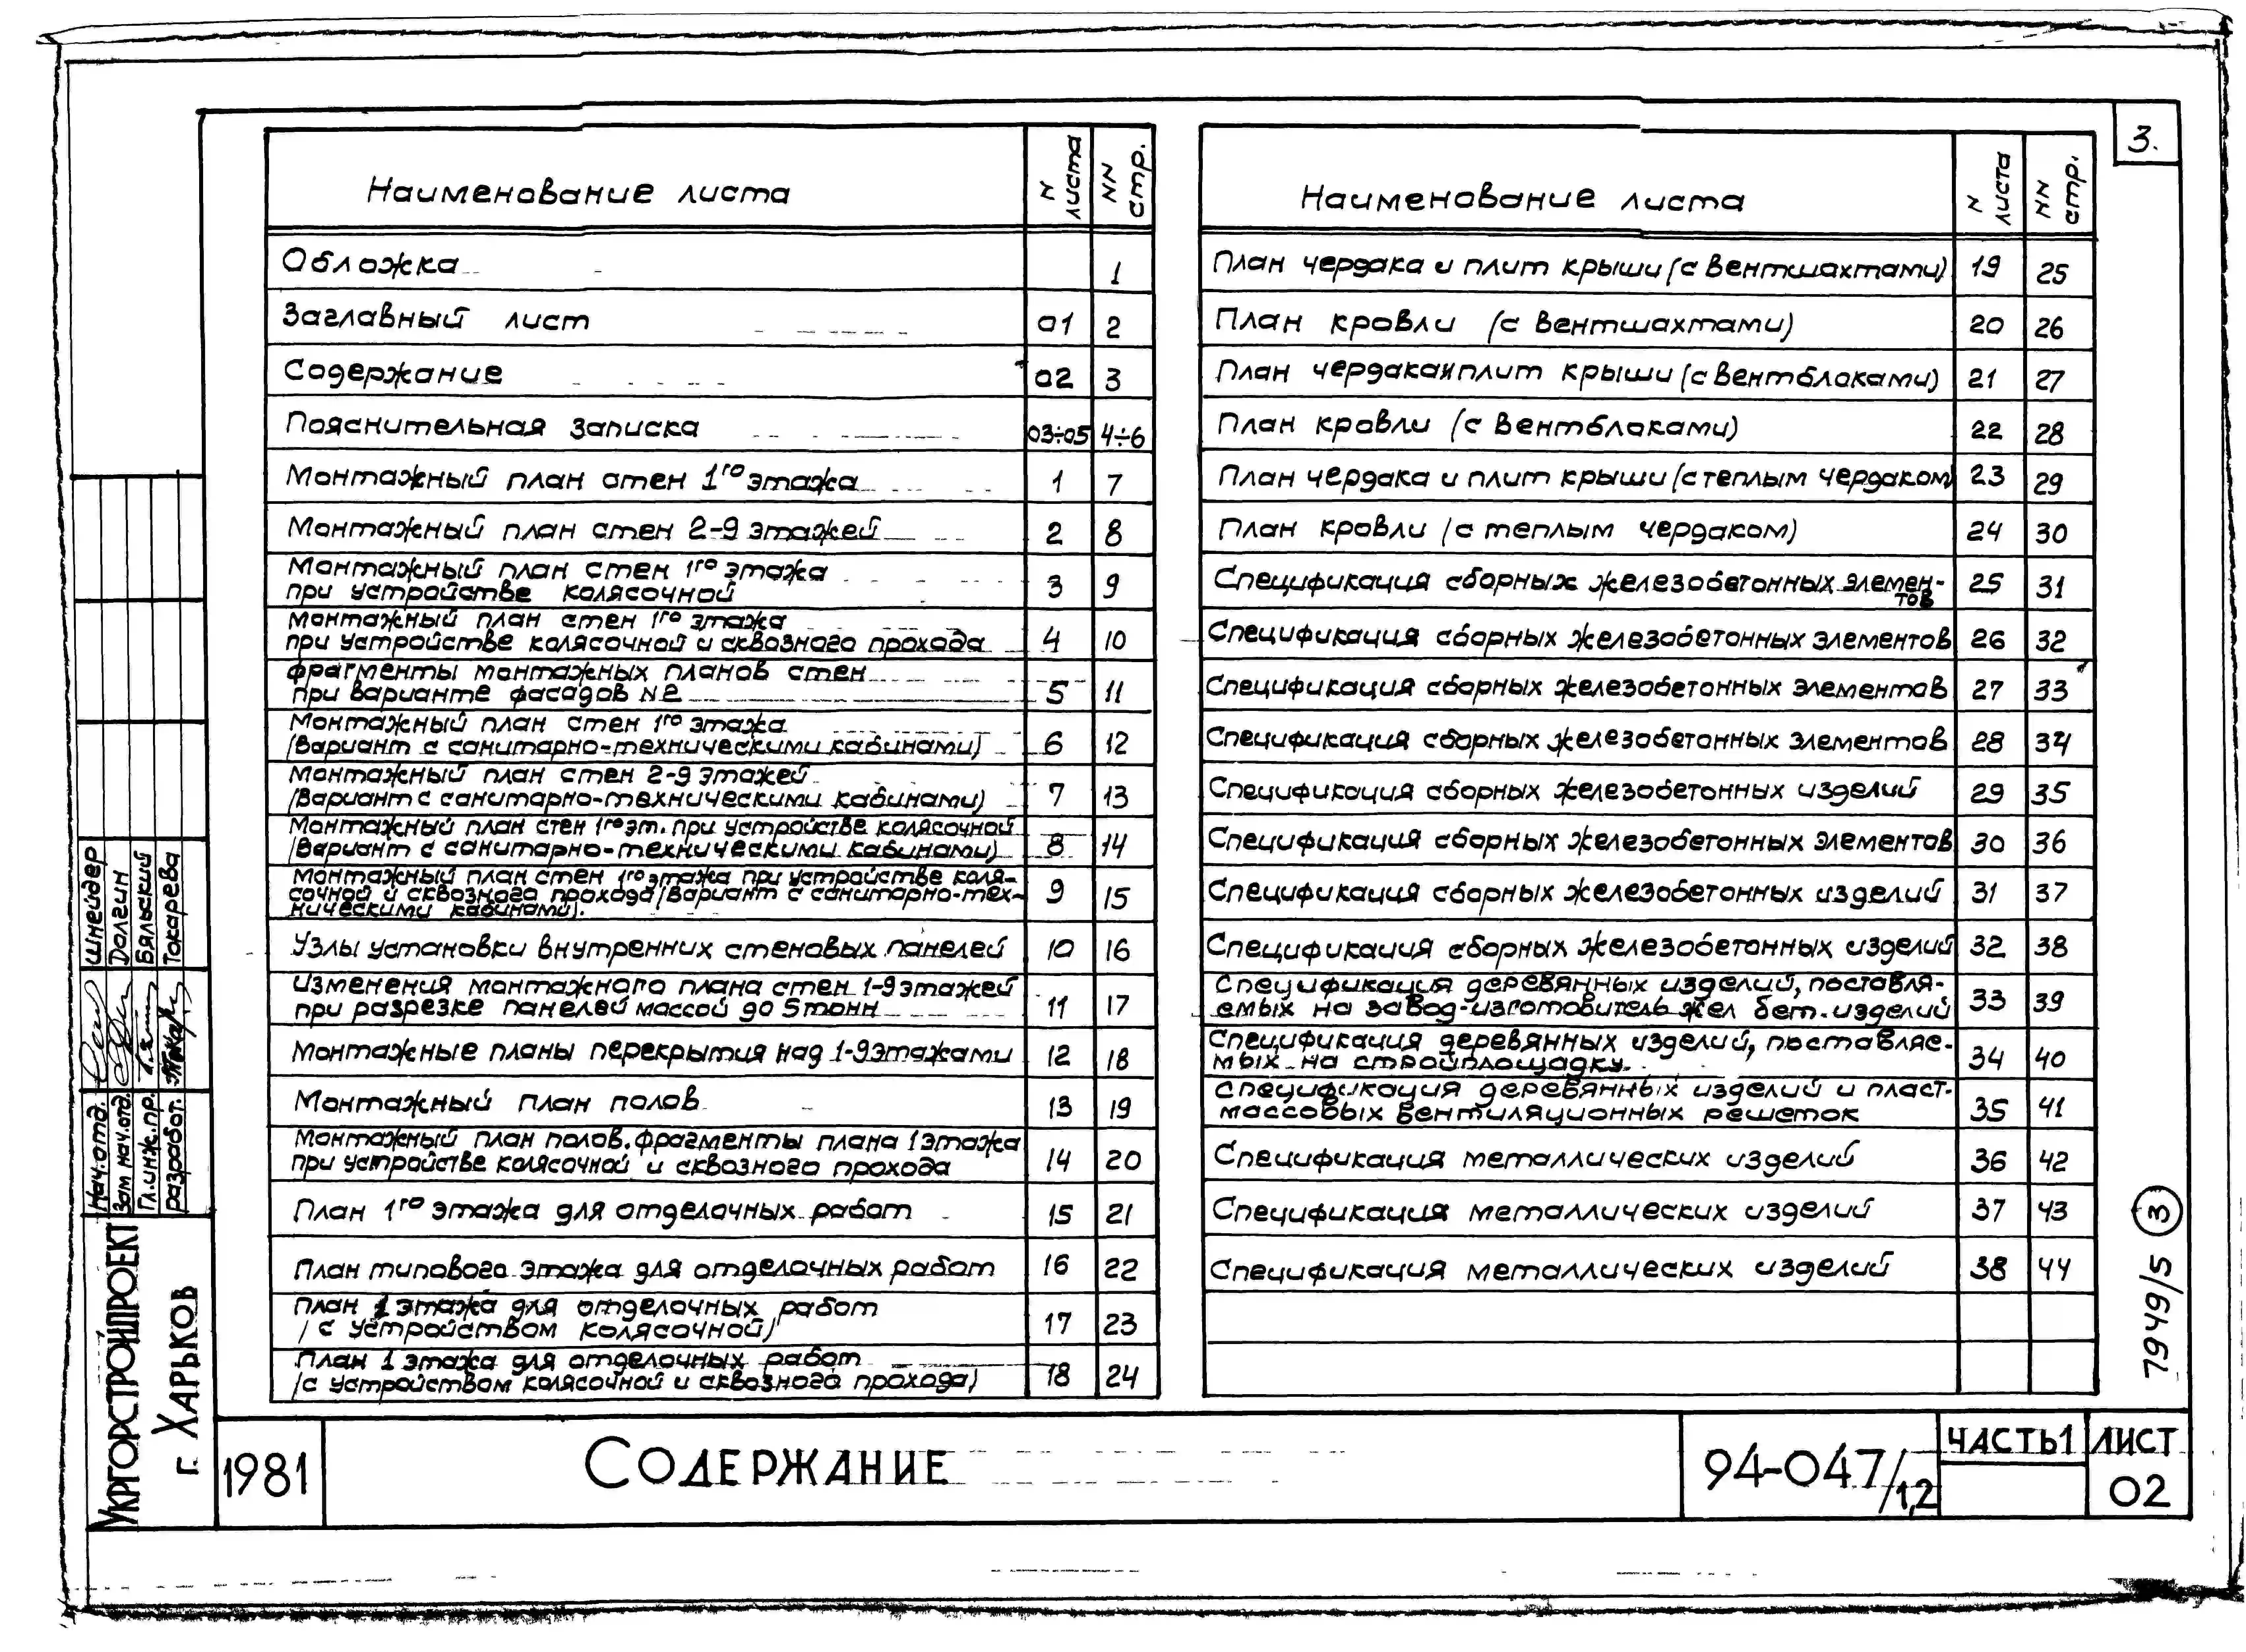 3.
Наименование листа N листа NN стр.
Обложка 1
Заглавный лист 01 2
Содержание 02 3
Пояснительная записка 03÷05 4÷6
Монтажный план стен 1го этажа 1 7
Монтажный план стен 2-9 этажей 2 8
Монтажный план стен 1го этажа
при устройстве колясочной 3 9
Монтажный план стен 1го этажа
при устройстве колясочной и сквозного прохода 4 10
Фрагменты монтажных планов стен
при варианте фасадов N2 5 11
Монтажный план стен 1го этажа
(Вариант с санитарно-техническими кабинами) 6 12
Монтажный план стен 2-9 этажей
(Вариант с санитарно-техническими кабинами) 7 13
Монтажный план стен 1го эт. при устройстве колясочной
(Вариант с санитарно-техническими кабинами) 8 14
Монтажный план стен 1го этажа при устройстве коля-
сочной и сквозного прохода (Вариант с санитарно-тех-
ническими кабинами). 9 15
Узлы установки внутренних стеновых панелей 10 16
Изменения монтажного плана стен 1-9 этажей
при разрезке панелей массой до 5 тонн 11 17
Монтажные планы перекрытия над 1-9 этажами 12 18
Монтажный план полов 13 19
Монтажный план полов. Фрагменты плана 1 этажа
при устройстве колясочной и сквозного прохода 14 20
План 1го этажа для отделочных работ 15 21
План типового этажа для отделочных работ 16 22
План 1 этажа для отделочных работ
(с устройством колясочной) 17 23
План 1 этажа для отделочных работ
(с устройством колясочной и сквозного прохода) 18 24
Наименование листа N листа NN стр.
План чердака и плит крыши (с вентшахтами) 19 25
План кровли (с вентшахтами) 20 26
План чердака и плит крыши (с вентблоками) 21 27
План кровли (с вентблоками) 22 28
План чердака и плит крыши (с теплым чердаком) 23 29
План кровли (с теплым чердаком) 24 30
Спецификация сборных железобетонных элемен-
тов 25 31
Спецификация сборных железобетонных элементов 26 32
Спецификация сборных железобетонных элементов 27 33
Спецификация сборных железобетонных элементов 28 34
Спецификация сборных железобетонных изделий 29 35
Спецификация сборных железобетонных элементов 30 36
Спецификация сборных железобетонных изделий 31 37
Спецификация сборных железобетонных изделий 32 38
Спецификация деревянных изделий, поставля-
емых на завод-изготовитель жел бет. изделий 33 39
Спецификация деревянных изделий, поставляе-
мых на стройплощадку. 34 40
Спецификация деревянных изделий и пласт-
массовых вентиляционных решеток 35 41
Спецификация металлических изделий 36 42
Спецификация металлических изделий 37 43
Спецификация металлических изделий 38 44
Нач. отд. Шнейдер
Зам нач. отд. Долгин
Гл. инж. пр. Бяльский
Разработ. Токарева
УКРГОРСТРОЙПРОЕКТ
г. ХАРЬКОВ
1981
СОДЕРЖАНИЕ
94-047/1,2
ЧАСТЬ 1
ЛИСТ
02
7949/5 3